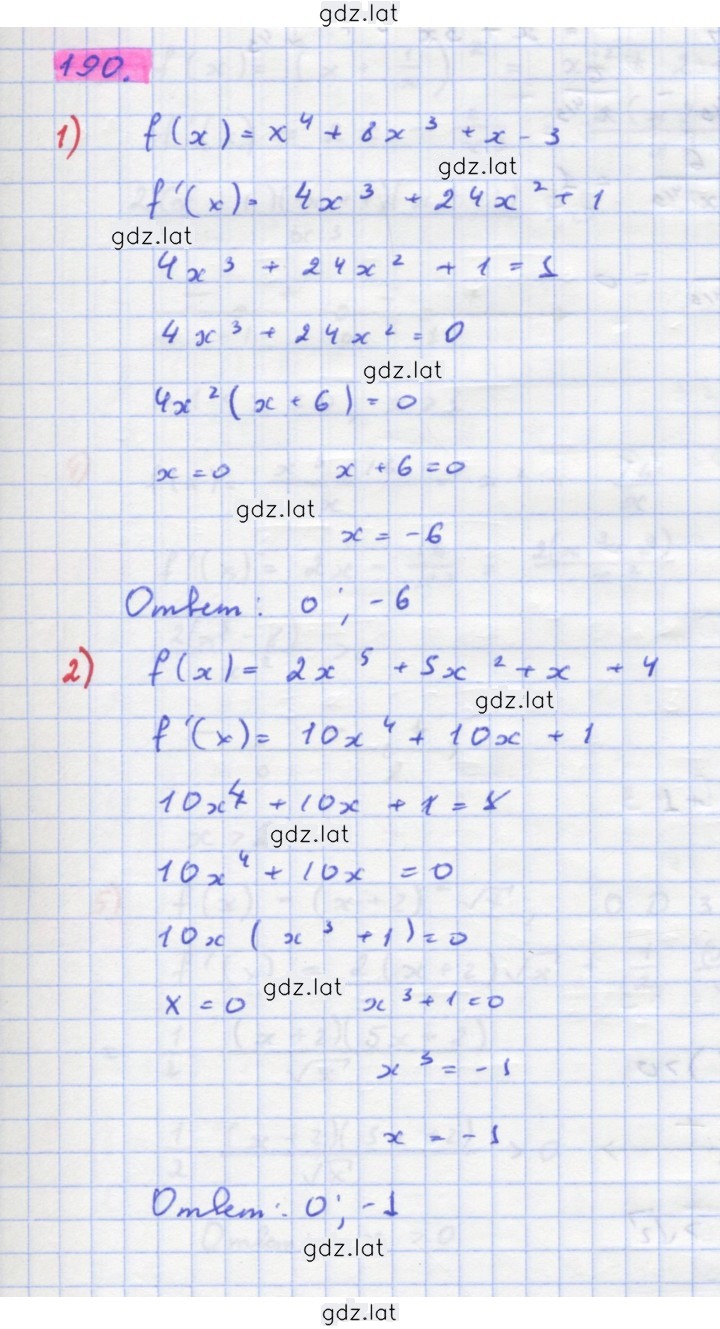 gdz.lat
190.
1) f(x) = x⁴ + 8x³ + x - 3
gdz.lat
f'(x) = 4x³ + 24x² + 1
gdz.lat
4x³ + 24x² + 1 = 1
4x³ + 24x² = 0
gdz.lat
4x²(x + 6) = 0
x = 0 x + 6 = 0
gdz.lat
x = -6
Ответ: 0; -6
2) f(x) = 2x⁵ + 5x² + x + 4
gdz.lat
f'(x) = 10x⁴ + 10x + 1
10x⁴ + 10x + 1 = 1
gdz.lat
10x⁴ + 10x = 0
10x (x³ + 1) = 0
gdz.lat
x = 0 x³ + 1 = 0
x³ = -1
x = -1
Ответ: 0; -1
gdz.lat
gdz.lat